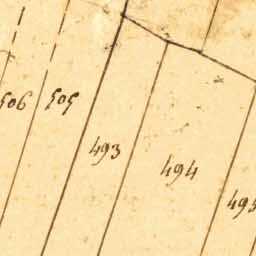 506
505
493
494
495